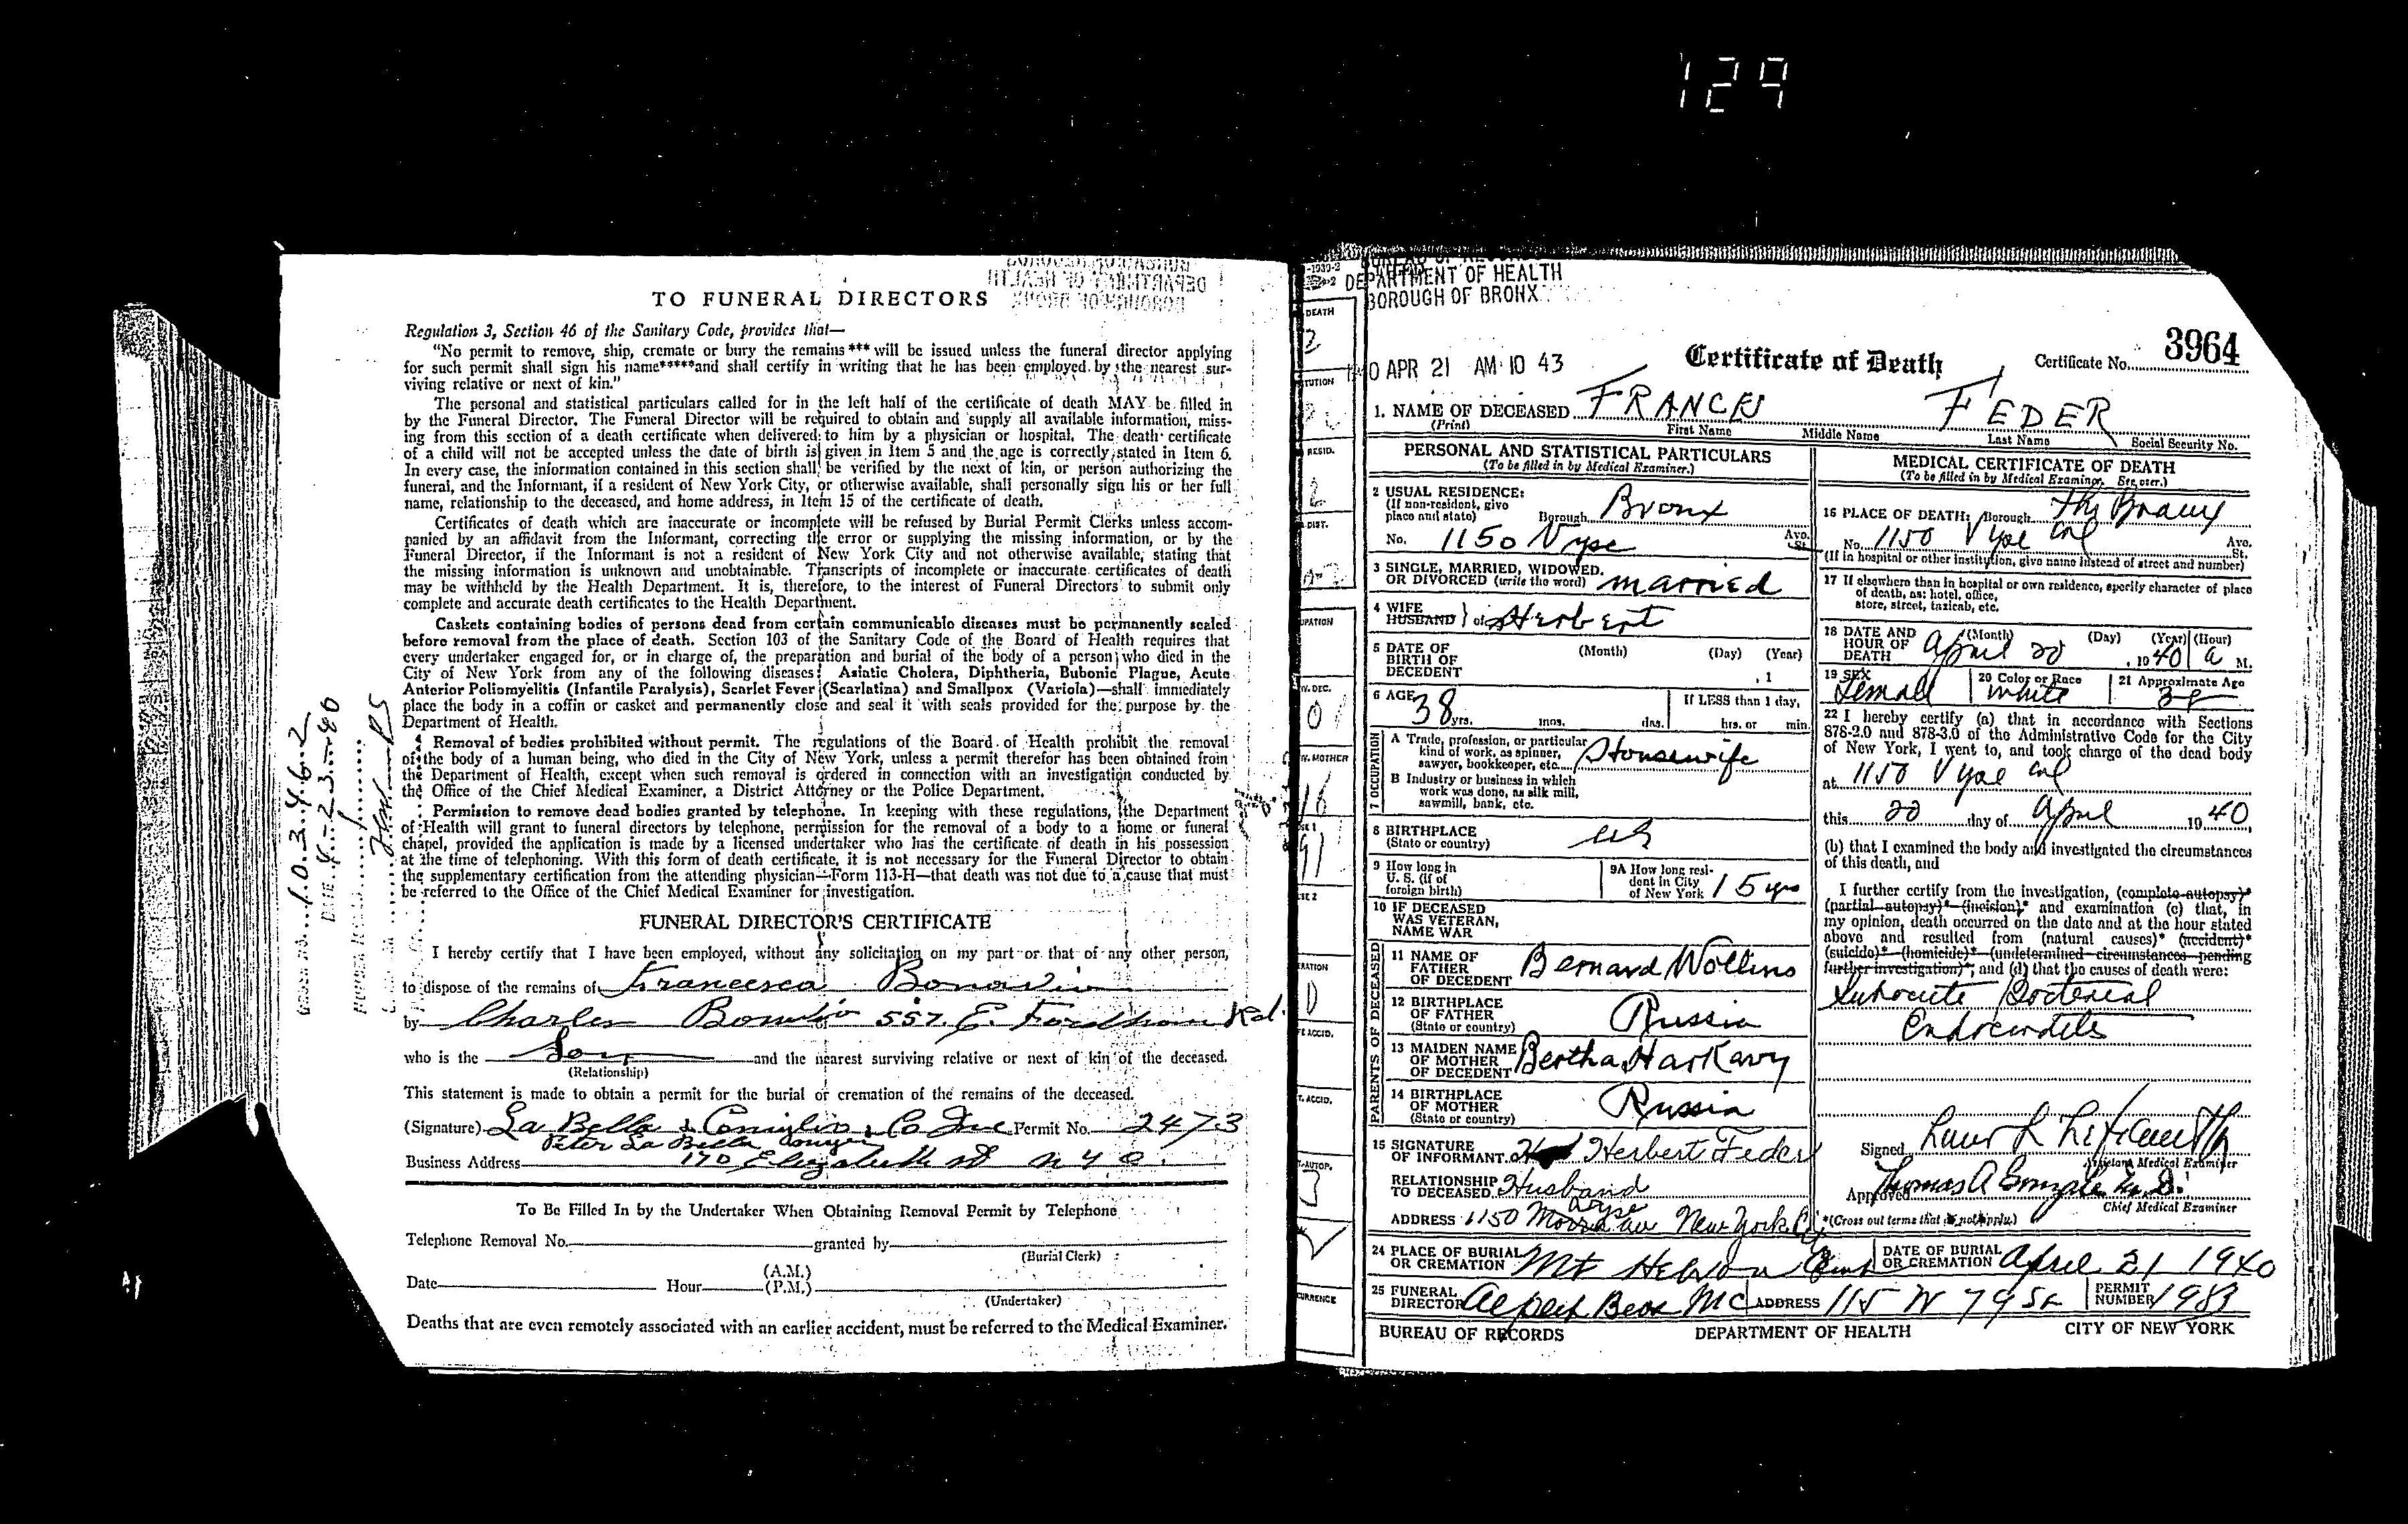 129
TO FUNERAL DIRECTORS
Regulation 3, Section 46 of the Sanitary Code, provides that—
"No permit to remove, ship, cremate or bury the remains *** will be issued unless the funeral director applying
for such permit shall sign his name*****and shall certify in writing that he has been employed by the nearest sur-
viving relative or next of kin."
The personal and statistical particulars called for in the left half of the certificate of death MAY be filled in
by the Funeral Director. The Funeral Director will be required to obtain and supply all available information, miss-
ing from this section of a death certificate when delivered to him by a physician or hospital. The death certificate
of a child will not be accepted unless the date of birth is given in Item 5 and the age is correctly stated in Item 6.
In every case, the information contained in this section shall be verified by the next of kin, or person authorizing the
funeral, and the Informant, if a resident of New York City, or otherwise available, shall personally sign his or her full
name, relationship to the deceased, and home address, in Item 15 of the certificate of death.
Certificates of death which are inaccurate or incomplete will be refused by Burial Permit Clerks unless accom-
panied by an affidavit from the Informant, correcting the error or supplying the missing information, or by the
Funeral Director, if the Informant is not a resident of New York City and not otherwise available, stating that
the missing information is unknown and unobtainable. Transcripts of incomplete or inaccurate certificates of death
may be withheld by the Health Department. It is, therefore, to the interest of Funeral Directors to submit only
complete and accurate death certificates to the Health Department.
Caskets containing bodies of persons dead from certain communicable diseases must be permanently sealed
before removal from the place of death. Section 103 of the Sanitary Code of the Board of Health requires that
every undertaker engaged for, or in charge of, the preparation and burial of the body of a person who died in the
City of New York from any of the following diseases: Asiatic Cholera, Diphtheria, Bubonic Plague, Acute
Anterior Poliomyelitis (Infantile Paralysis), Scarlet Fever (Scarlatina) and Smallpox (Variola)—shall immediately
place the body in a coffin or casket and permanently close and seal it with seals provided for the purpose by the
Department of Health.
Removal of bodies prohibited without permit. The regulations of the Board of Health prohibit the removal
of the body of a human being, who died in the City of New York, unless a permit therefor has been obtained from
the Department of Health, except when such removal is ordered in connection with an investigation conducted by
the Office of the Chief Medical Examiner, a District Attorney or the Police Department.
Permission to remove dead bodies granted by telephone. In keeping with these regulations, the Department
of Health will grant to funeral directors by telephone, permission for the removal of a body to a home or funeral
chapel, provided the application is made by a licensed undertaker who has the certificate of death in his possession
at the time of telephoning. With this form of death certificate, it is not necessary for the Funeral Director to obtain
the supplementary certification from the attending physician—Form 113-H—that death was not due to a cause that must
be referred to the Office of the Chief Medical Examiner for investigation.
FUNERAL DIRECTOR'S CERTIFICATE
I hereby certify that I have been employed, without any solicitation on my part or that of any other person,
to dispose of the remains of Francesca
by Charles 557 E. Fordham Rd.
who is the Son and the nearest surviving relative or next of kin of the deceased.
(Relationship)
This statement is made to obtain a permit for the burial or cremation of the remains of the deceased.
(Signature) La Bella & Coniglio Co Inc Permit No. 2473
Peter La Bella
Business Address 170 Elizabeth St N Y C.
To Be Filled In by the Undertaker When Obtaining Removal Permit by Telephone
Telephone Removal No. granted by
(Burial Clerk)
Date Hour (A.M.) (P.M.)
(Undertaker)
Deaths that are even remotely associated with an earlier accident, must be referred to the Medical Examiner.
10346-2
4-23-40
DEPARTMENT OF HEALTH
BOROUGH OF BRONX
APR 21 AM 10 43
Certificate of Death
Certificate No. 3964
1. NAME OF DECEASED FRANCES FEDER
(Print) First Name Middle Name Last Name Social Security No.
PERSONAL AND STATISTICAL PARTICULARS
(To be filled in by Medical Examiner.)
2 USUAL RESIDENCE:
(If non-resident, give
place and state) Borough Bronx
No. 1150 Vyse Ave. St.
3 SINGLE, MARRIED, WIDOWED,
OR DIVORCED (write the word) married
4 WIFE
HUSBAND } of Herbert
5 DATE OF
BIRTH OF
DECEDENT (Month) (Day) (Year)
, 1
6 AGE 38 yrs. mos. ds. If LESS than 1 day, hrs. or min.
7 OCCUPATION
A Trade, profession, or particular
kind of work, as spinner,
sawyer, bookkeeper, etc. Housewife
B Industry or business in which
work was done, as silk mill,
sawmill, bank, etc.
8 BIRTHPLACE
(State or country) US
9 How long in
U. S. (if of
foreign birth)
9A How long resi-
dent in City
of New York 15 yrs
10 IF DECEASED
WAS VETERAN,
NAME WAR
PARENTS OF DECEASED
11 NAME OF
FATHER
OF DECEDENT Bernard Wollins
12 BIRTHPLACE
OF FATHER
(State or country) Russia
13 MAIDEN NAME
OF MOTHER
OF DECEDENT Bertha Harkavy
14 BIRTHPLACE
OF MOTHER
(State or country) Russia
15 SIGNATURE
OF INFORMANT Herbert Feder
RELATIONSHIP
TO DECEASED Husband
Vyse
ADDRESS 1150 av New York City
MEDICAL CERTIFICATE OF DEATH
(To be filled in by Medical Examiner. See over.)
16 PLACE OF DEATH: Borough The Bronx
No. 1150 Vyse Ave Ave. St.
(If in hospital or other institution, give name instead of street and number)
17 If elsewhere than in hospital or own residence, specify character of place
of death, as: hotel, office,
store, street, taxicab, etc.
18 DATE AND
HOUR OF
DEATH (Month) (Day) (Year) (Hour)
April 20, 1940 a M.
19 SEX Female
20 Color or Race White
21 Approximate Age 38
22 I hereby certify (a) that in accordance with Sections
878-2.0 and 878-3.0 of the Administrative Code for the City
of New York, I went to, and took charge of the dead body
at 1150 Vyse Ave
this 20 day of April 1940,
(b) that I examined the body and investigated the circumstances
of this death, and
I further certify from the investigation, (complete autopsy)*
(partial autopsy)* (incision)* and examination (c) that, in
my opinion, death occurred on the date and at the hour stated
above and resulted from (natural causes)* (accident)*
(suicide)* (homicide)* (undetermined circumstances pending
further investigation)*; and (d) that the causes of death were:
Subacute Bacterial
Endocarditis
Signed
Assistant Medical Examiner
Approved Thomas A Gonzales M.D.
Chief Medical Examiner
*(Cross out terms that do not apply.)
24 PLACE OF BURIAL
OR CREMATION Mt Hebron Cem
DATE OF BURIAL
OR CREMATION April 21 1940
25 FUNERAL
DIRECTOR Alpert Bros Inc ADDRESS 115 W 79 St PERMIT NUMBER 1983
BUREAU OF RECORDS DEPARTMENT OF HEALTH CITY OF NEW YORK